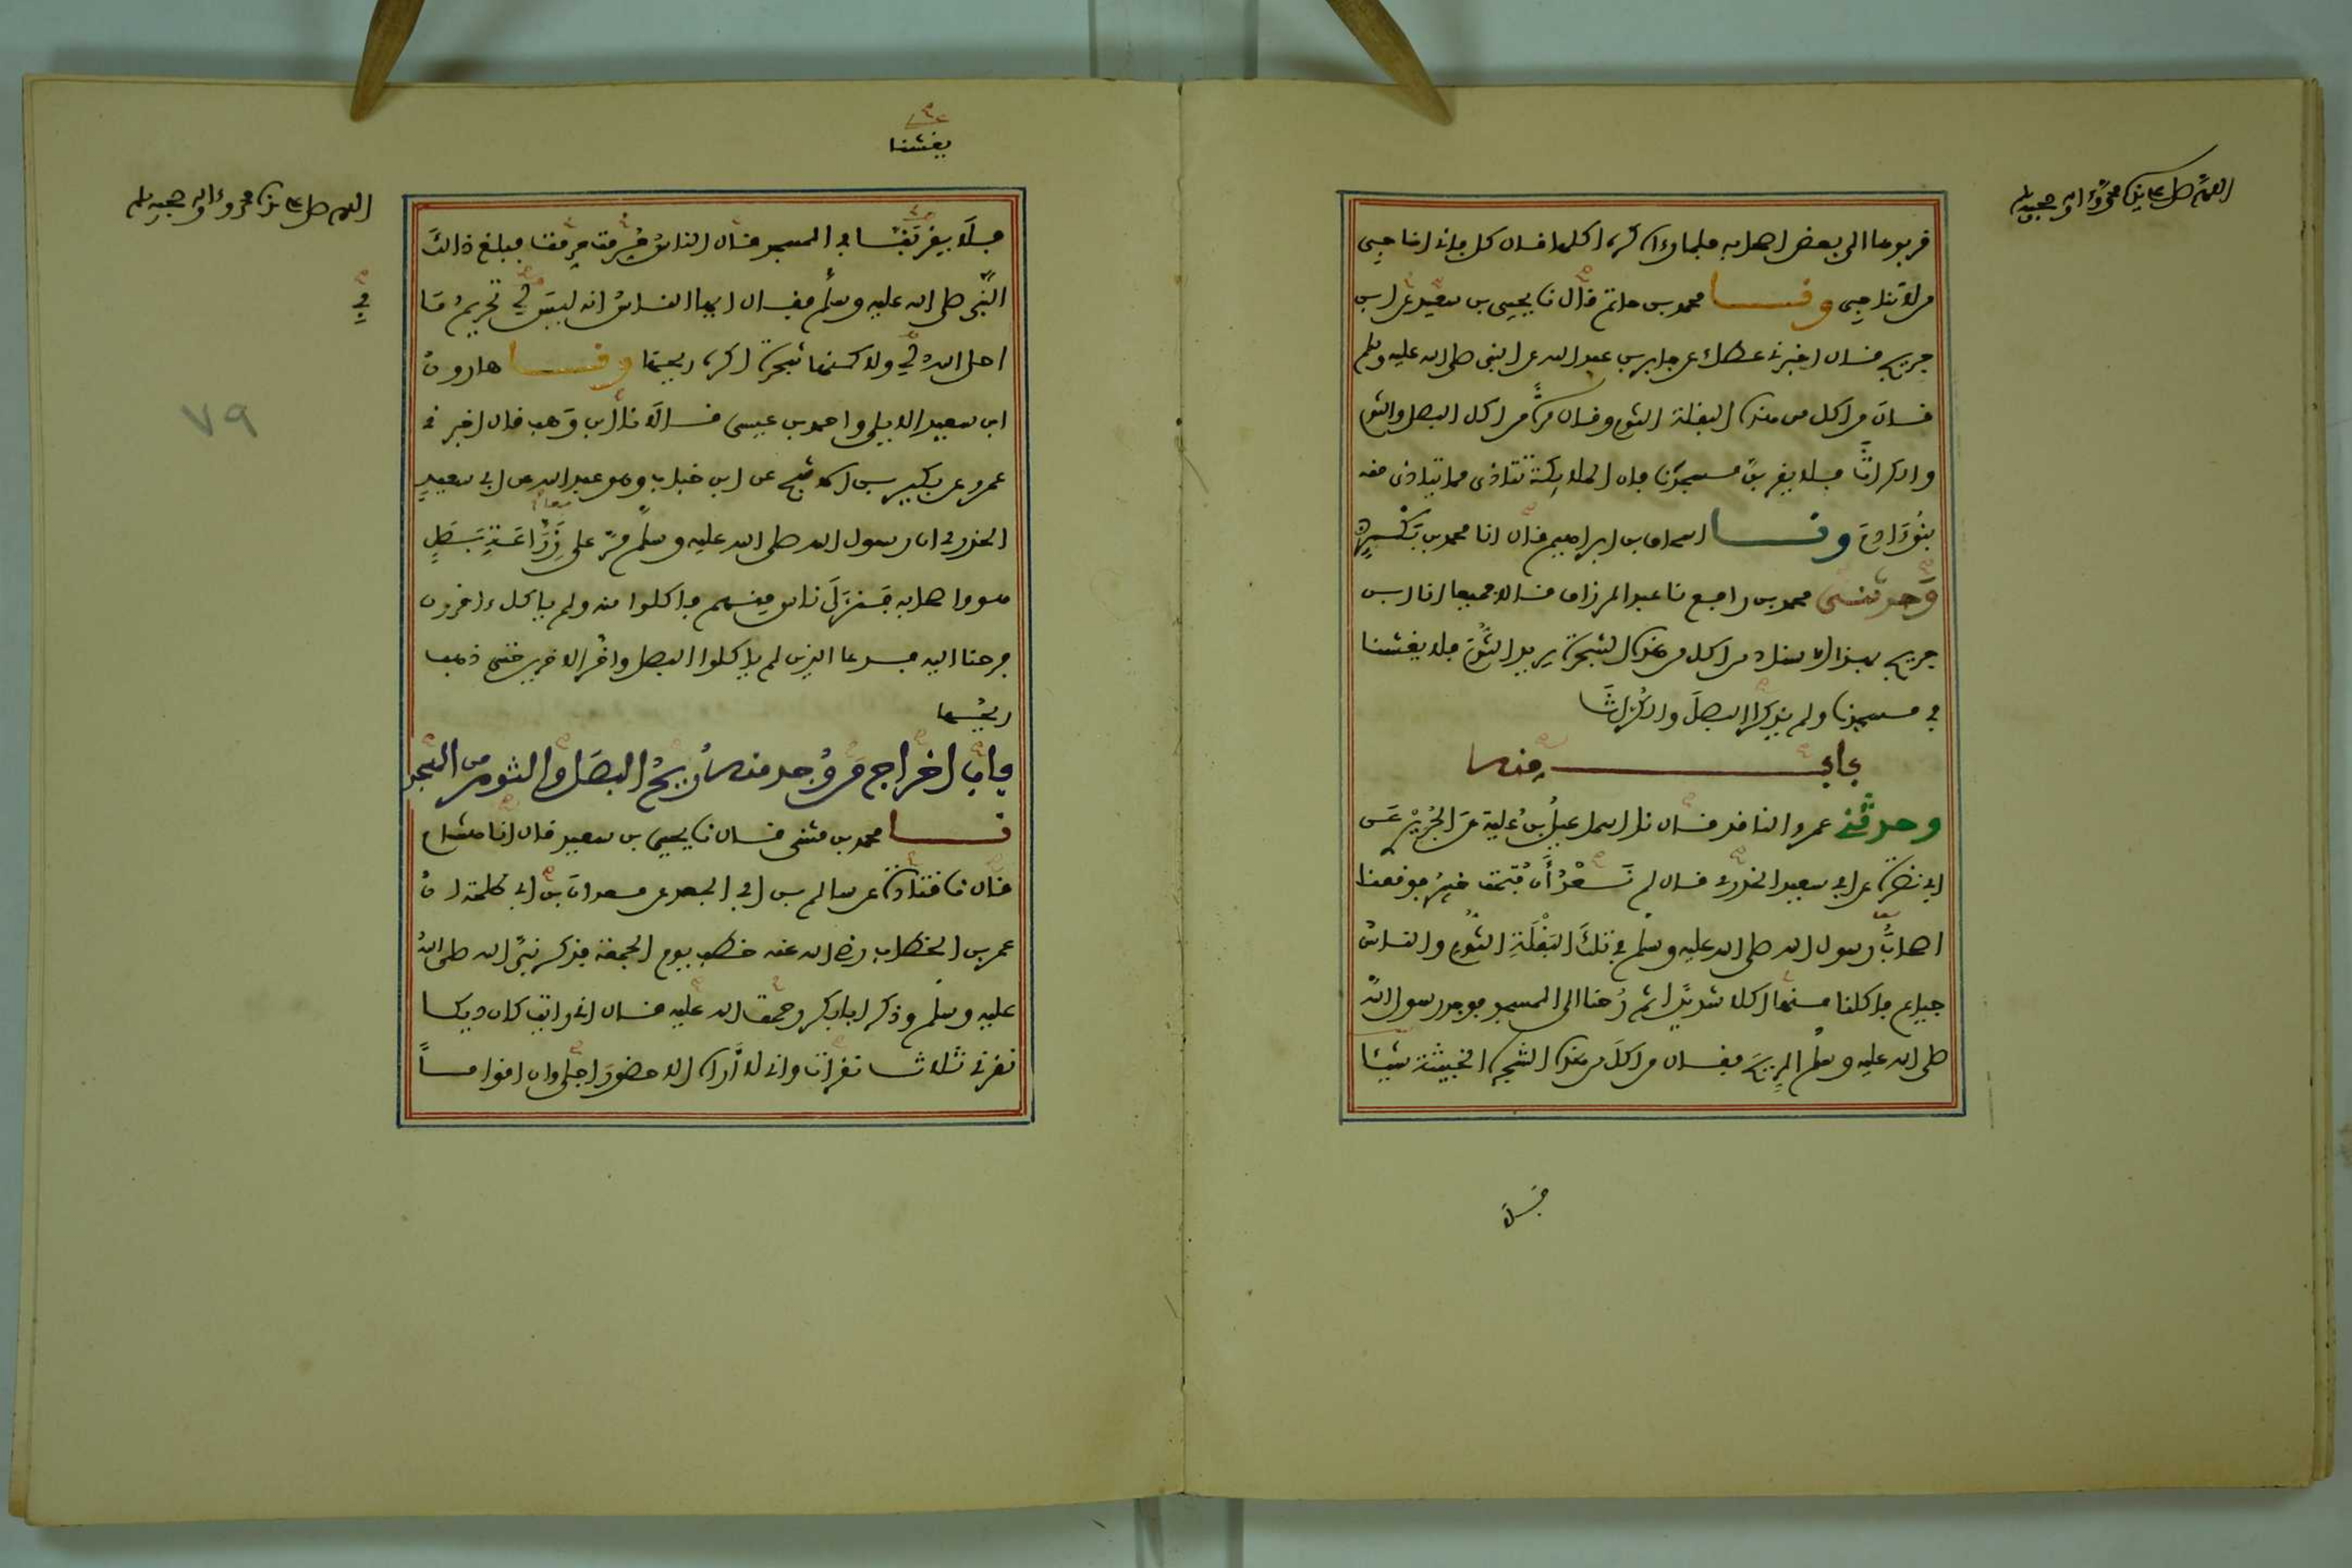 اللهم صل على سيدنا محمد وءاله وصحبه وسلم
قربوها الى بعض اصحابه فلما رءاه كره اكلها قال كل فاني اناجي
من لا تناجي ونا محمد بن حاتم قال نا يحيى بن سعيد عن ابن
جريج قال اخبرني عطاء عن جابر بن عبد الله عن النبي صلى الله عليه وسلم
قال من اكل من هذه البقلة الثوم وقال مرة من اكل البصل والثوم
والكراث فلا يقربن مسجدنا فان الملايكة تتاذى مما يتاذى منه
بنو ءادم ونا اسحاق بن ابراهيم قال انا محمد بن بكر
وحدثني محمد بن رافع نا عبد الرزاق قالا جميعا انا ابن
جريج بهذا الاسناد من اكل من هذه الشجرة يريد الثوم فلا يغشنا
في مسجدنا ولم يذكر البصل والكراث
باب منه
وحدثني عمرو الناقد قال نا اسماعيل بن علية عن الجريري عن
ابي نضرة عن ابي سعيد الخدري قال لم نعد أن فتحت خيبر فوقعنا
اصحاب رسول الله صلى الله عليه وسلم في تلك البقلة الثوم والناس
جياع فاكلنا منها اكلا شديدا ثم رحنا الى المسجد فوجد رسول الله
صلى الله عليه وسلم الريح فقال من اكل من هذه الشجرة الخبيثة شيئا
فلا
يغشنا
اللهم صل على سيدنا محمد وءاله وصحبه وسلم
فلا يقربنا في المسجد فقال الناس حرمت حرمت فبلغ ذالك
النبي صلى الله عليه وسلم فقال ايها الناس انه ليس لي تحريم ما
في
احل الله لي ولاكنها شجرة اكره ريحها ونا هارون
٧٩
ابن سعيد الايلي واحمد بن عيسى قالا نا ابن وهب قال اخبرني
عمرو عن بكير بن الاشج عن ابن خباب وهو عبد الله عن ابي سعيد
الخدري ان رسول الله صلى الله عليه وسلم مر على زراعة بصل
هو واصحابه فنزل ناس منهم فاكلوا منه ولم ياكل ءاخرون
فرحنا اليه فدعا الذين لم ياكلوا البصل واخر الاخرين حتى ذهب
ريحها
باب اخراج من وجد منه ريح البصل والثوم من المسجد
نا محمد بن مثنى قال نا يحيى بن سعيد قال نا هشام
قال نا قتادة عن سالم بن ابي الجعد عن معدان بن ابي طلحة ان
عمر بن الخطاب رضي الله عنه خطب يوم الجمعة فذكر نبي الله صلى الله
عليه وسلم وذكر ابا بكر رحمة الله عليه قال اني رايت كان ديكا
نقرني ثلاث نقرات واني لا أراه الا حضور اجلي وان اقواما